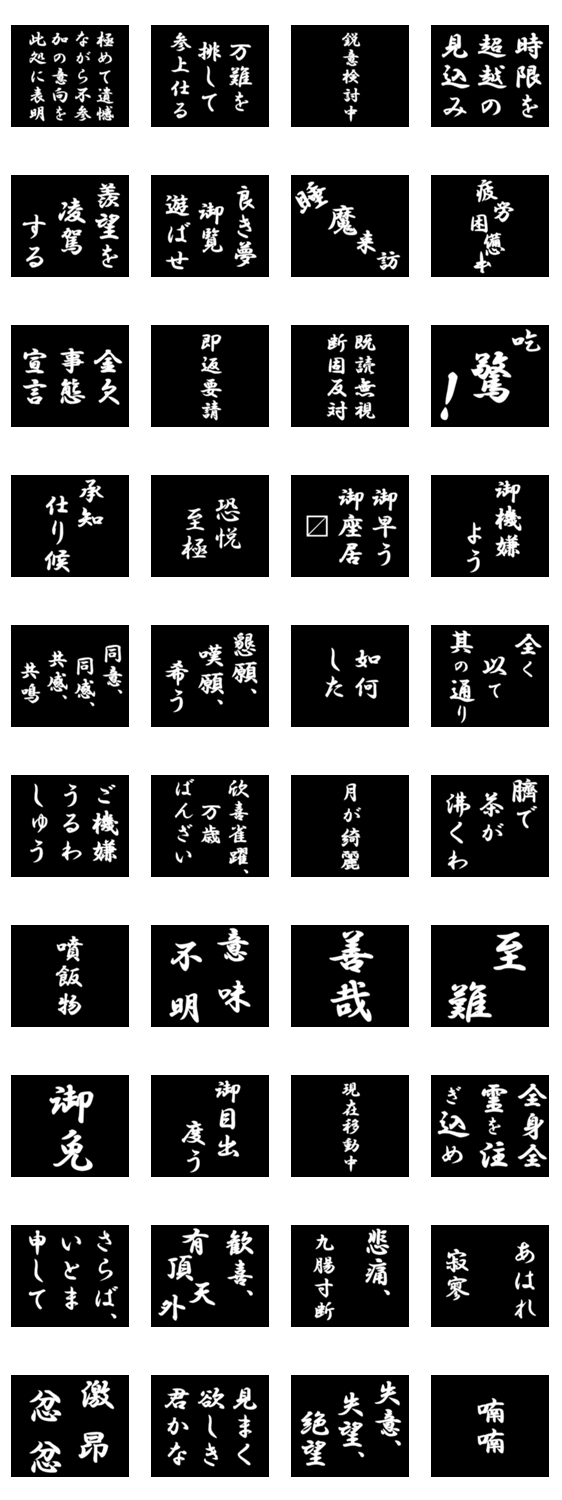 極めて遺憾
ながら不参
加の意向を
此処に表明
万難を
排して
参上仕る
鋭意検討中
時限を
超越の
見込み
羨望を
凌駕
する
良き夢
御覧
遊ばせ
睡魔来訪
疲労困憊中
金欠
事態
宣言
即返要請
既読無視
断固反対
吃
驚
！
承知
仕り候
恐悦
至極
御早う
御座居
〼
御機嫌
よう
同意、
同感、
共感、
共鳴
懇願、
嘆願、
希う
如何
した
全く
以て
其の通り
ご機嫌
うるわ
しゅう
欣喜雀躍、
万歳
ばんざい
月が綺麗
臍で
茶が
沸くわ
噴飯物
意味
不明
善哉
至
難
御免
御目出
度う
現在移動中
全身全
霊を注
ぎ込め
さらば、
いとま
申して
歓喜、
有頂天外
悲痛、
九腸寸断
あはれ
寂寥
激昂
忿忿
見まく
欲しき
君かな
失意、
失望、
絶望
喃喃